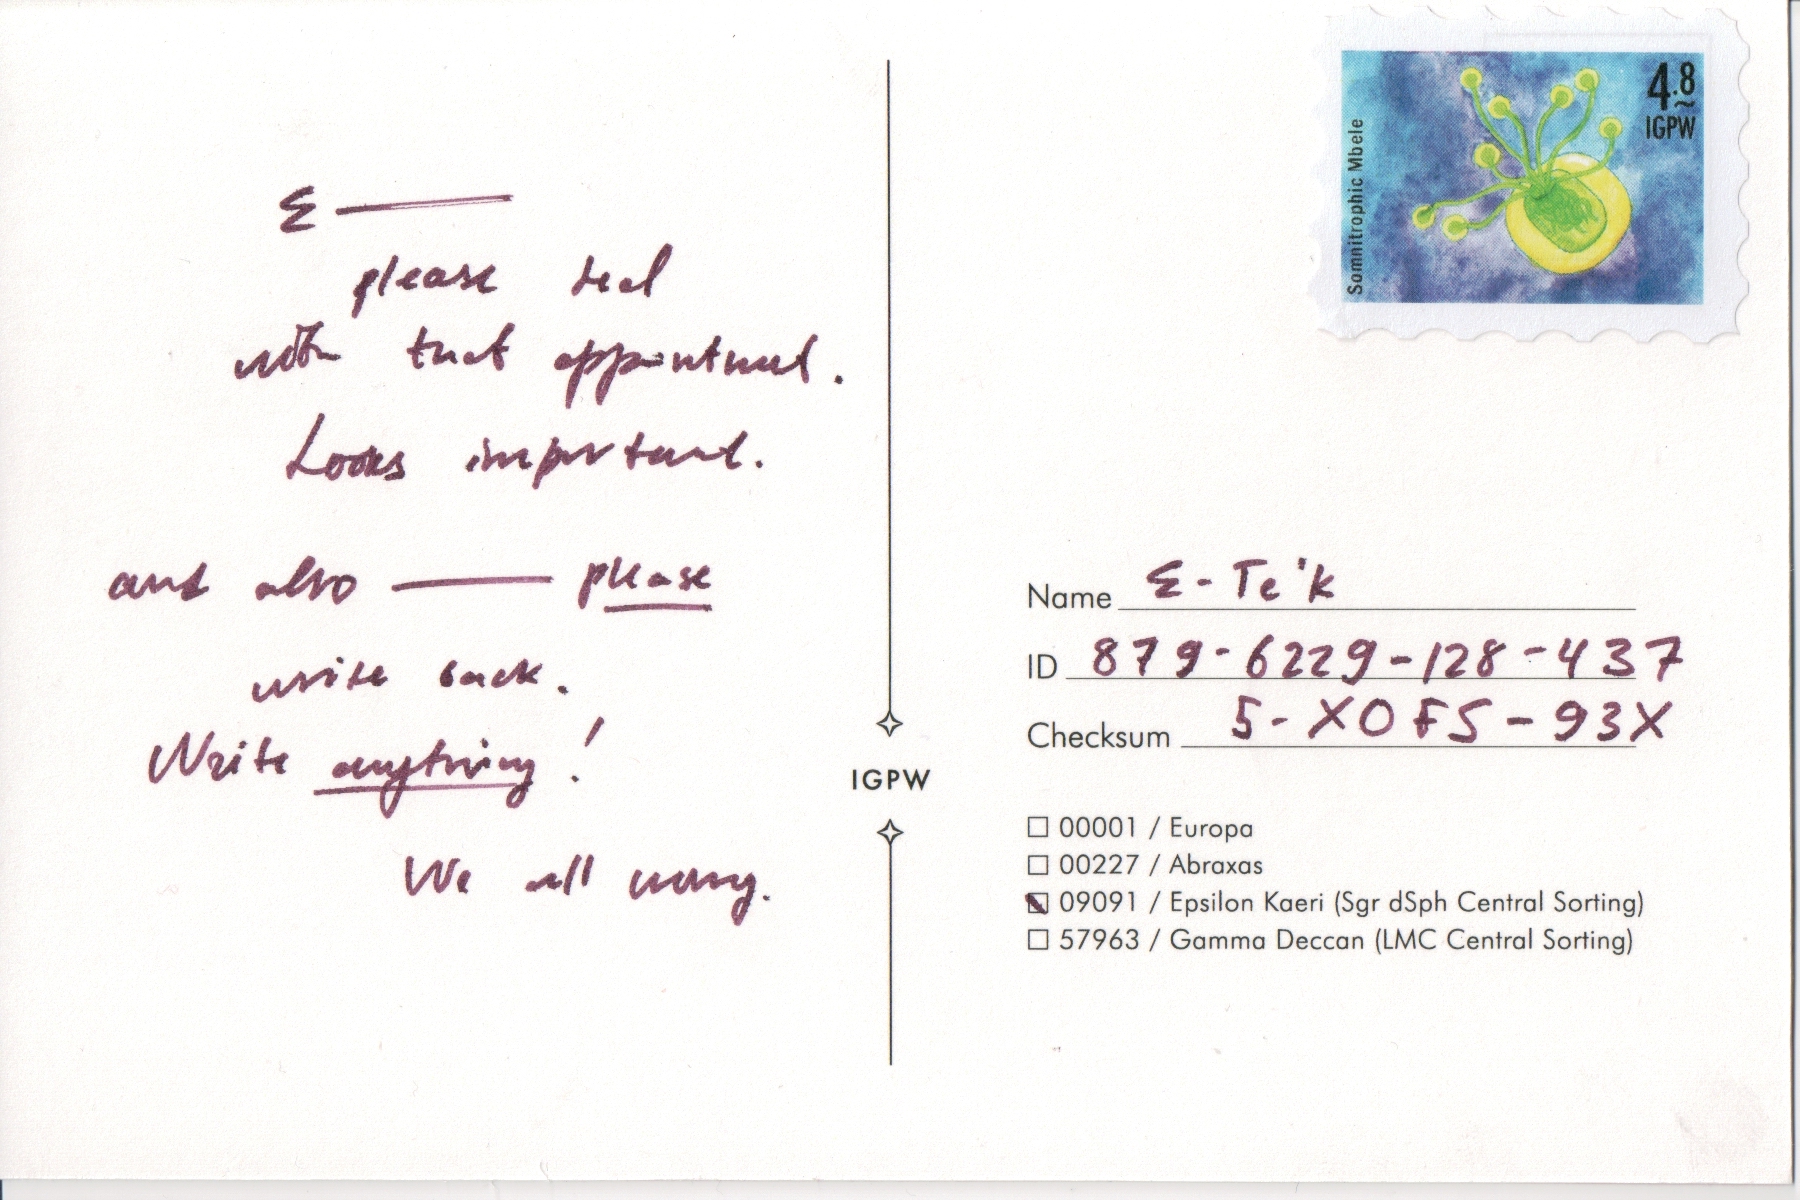 Σ —
please deal
with that appointment.
Looks important.
and also — please
write back.
Write anything!
We all worry.
Somnitrophic Mbele
4.8
IGPW
IGPW
Name Σ-Te'k
ID 879-6229-128-437
Checksum 5-XOFS-93X
00001 / Europa
00227 / Abraxas
09091 / Epsilon Kaeri (Sgr dSph Central Sorting)
57963 / Gamma Deccan (LMC Central Sorting)